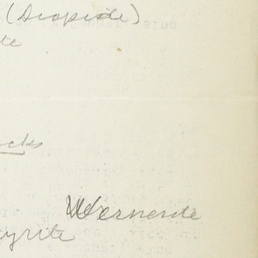 (Diopside)
te
cks
Wernerite
yrite